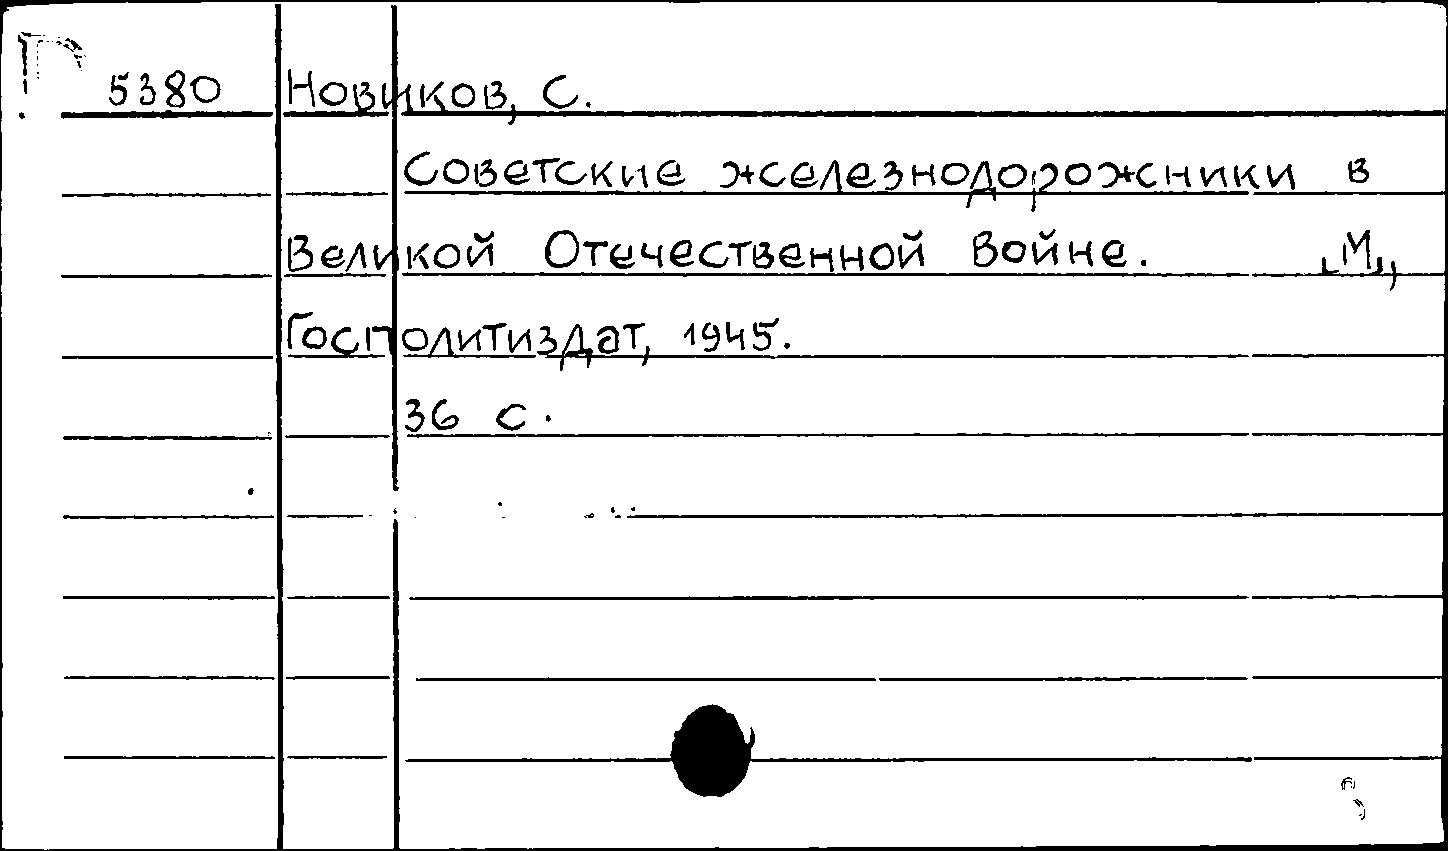 5380 Новиков, С.
Советские железнодорожники в
Великой Отечественной Войне. [М.],
Госполитиздат, 1945.
36 с.